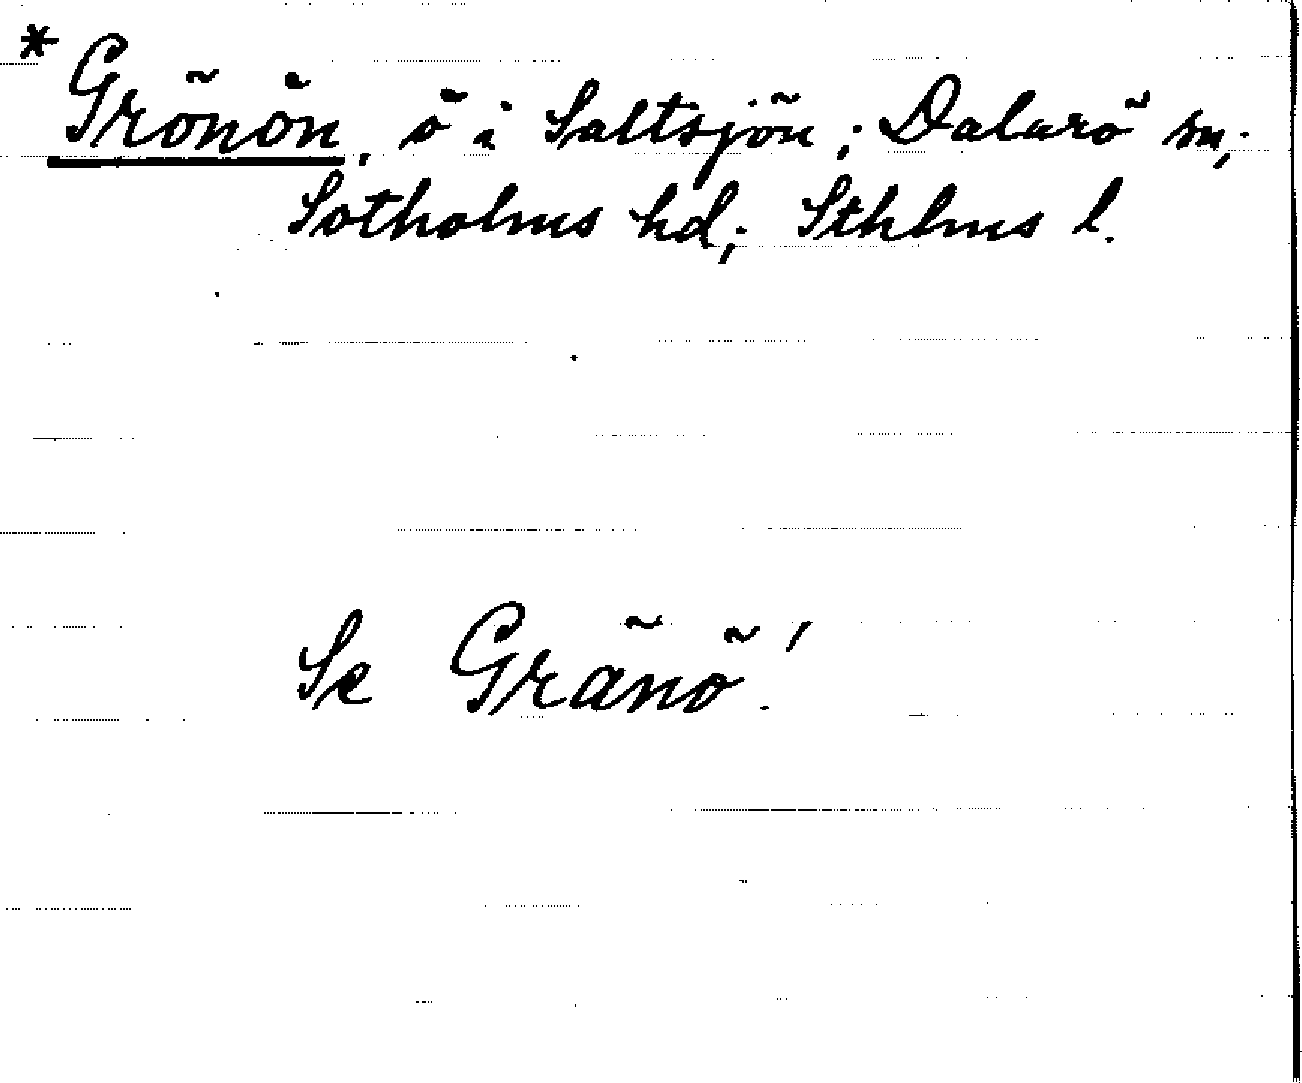 * Grönön, ö i Saltsjön; Dalarö sn;
Sotholms hd; Sthlms l.
Se Gränö!